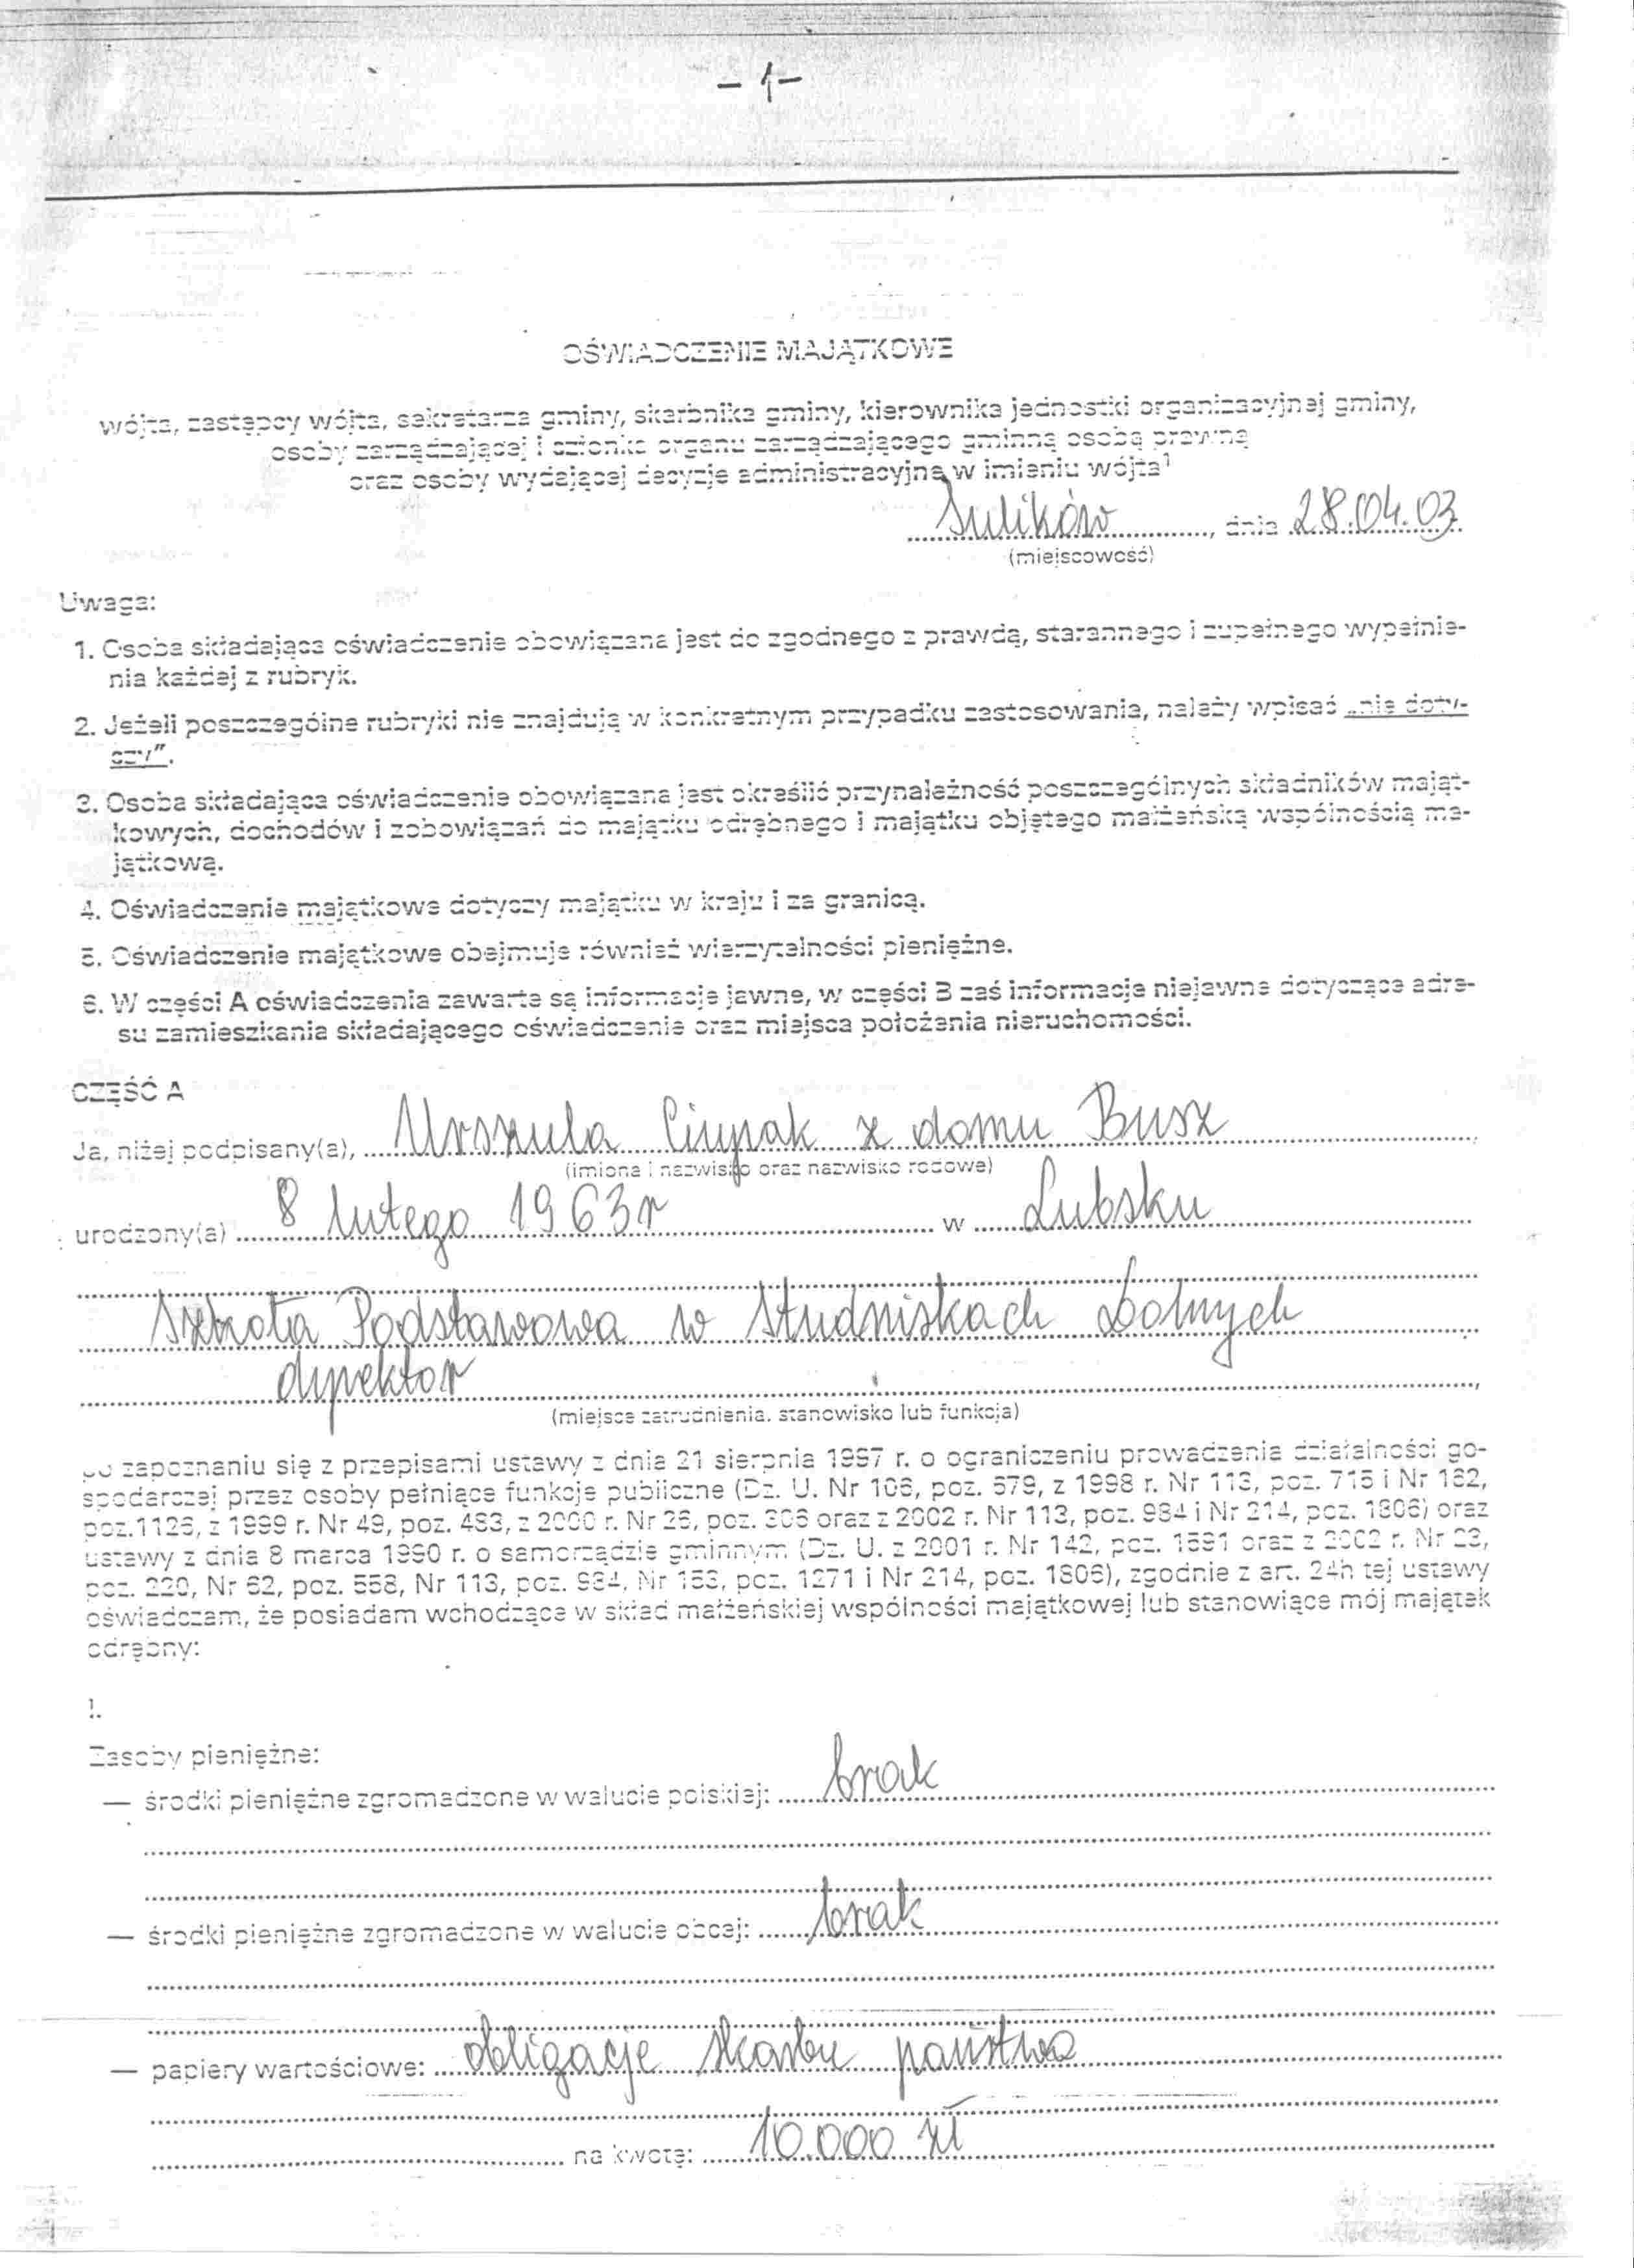 – 1 –
OŚWIADCZENIE MAJĄTKOWE
wójta, zastępcy wójta, sekretarza gminy, skarbnika gminy, kierownika jednostki organizacyjnej gminy,
osoby zarządzającej i członka organu zarządzającego gminną osobą prawną
oraz osoby wydającej decyzje administracyjne w imieniu wójta¹
Sulików, dnia 28.04.03
(miejscowość)
Uwaga:
1. Osoba składająca oświadczenie obowiązana jest do zgodnego z prawdą, starannego i zupełnego wypełnie-
nia każdej z rubryk.
2. Jeżeli poszczególne rubryki nie znajdują w konkretnym przypadku zastosowania, należy wpisać „nie doty-
czy”.
3. Osoba składająca oświadczenie obowiązana jest określić przynależność poszczególnych składników mająt-
kowych, dochodów i zobowiązań do majątku odrębnego i majątku objętego małżeńską wspólnością ma-
jątkową.
4. Oświadczenie majątkowe dotyczy majątku w kraju i za granicą.
5. Oświadczenie majątkowe obejmuje również wierzytelności pieniężne.
6. W części A oświadczenia zawarte są informacje jawne, w części B zaś informacje niejawne dotyczące adre-
su zamieszkania składającego oświadczenie oraz miejsca położenia nieruchomości.
CZĘŚĆ A
Ja, niżej podpisany(a), Urszula z domu Busz
(imiona i nazwisko oraz nazwisko rodowe)
urodzony(a) 8 lutego 1963r w Lubsku
Szkoła Podstawowa w Studniskach Dolnych
dyrektor
(miejsce zatrudnienia, stanowisko lub funkcja)
po zapoznaniu się z przepisami ustawy z dnia 21 sierpnia 1997 r. o ograniczeniu prowadzenia działalności go-
spodarczej przez osoby pełniące funkcje publiczne (Dz. U. Nr 106, poz. 679, z 1998 r. Nr 113, poz. 715 i Nr 162,
poz. 1126, z 1999 r. Nr 49, poz. 483, z 2000 r. Nr 26, poz. 306 oraz z 2002 r. Nr 113, poz. 984 i Nr 214, poz. 1806) oraz
ustawy z dnia 8 marca 1990 r. o samorządzie gminnym (Dz. U. z 2001 r. Nr 142, poz. 1591 oraz z 2002 r. Nr 23,
poz. 220, Nr 62, poz. 558, Nr 113, poz. 984, Nr 153, poz. 1271 i Nr 214, poz. 1806), zgodnie z art. 24h tej ustawy
oświadczam, że posiadam wchodzące w skład małżeńskiej wspólności majątkowej lub stanowiące mój majątek
odrębny:
I.
Zasoby pieniężne:
— środki pieniężne zgromadzone w walucie polskiej: brak
— środki pieniężne zgromadzone w walucie obcej: brak
— papiery wartościowe: obligacje skarbu państwa
na kwotę: 10.000 zł